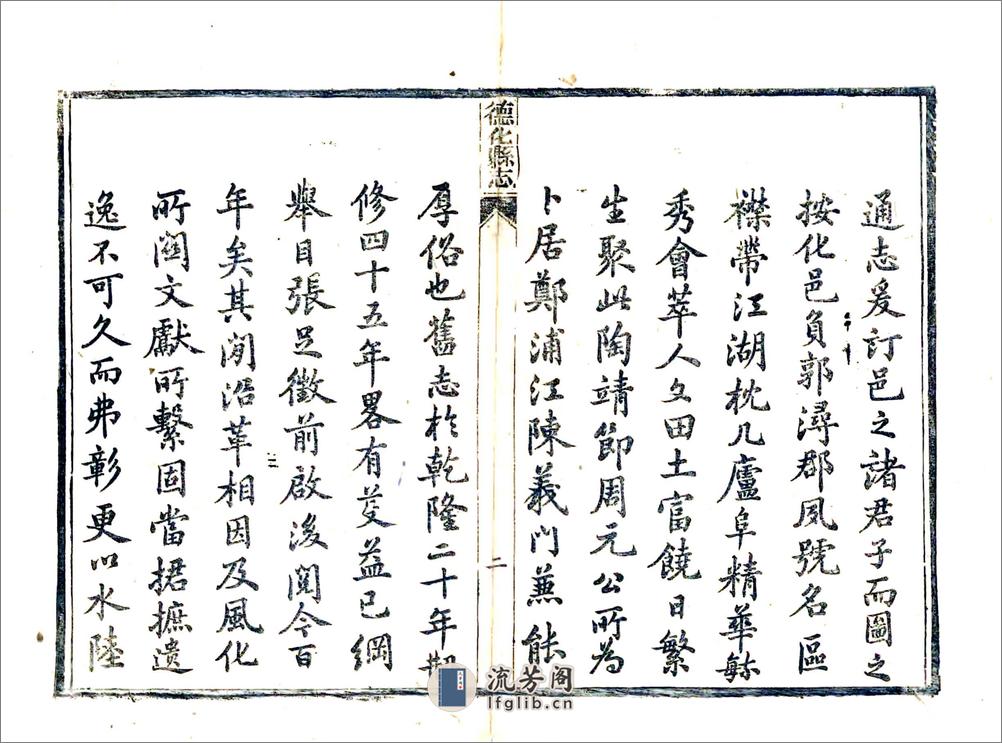 通志爰訂邑之諸君子而圖之
按化邑負郭潯郡夙號名區
襟帶江湖枕几廬阜精華毓
秀會萃人文田土富饒日繁
生聚此陶靖節周元公所為
卜居鄭浦江陳義門兼能
德化縣志
二
厚俗也舊志於乾隆二十年
修四十五年畧有芟益已綱
舉目張足徵前啟後閱今百
年矣其間沿革相因及風化
所關文獻所繫固當捃摭遺
逸不可久而弗彰更以水陸
流芳阁
lfglib.cn